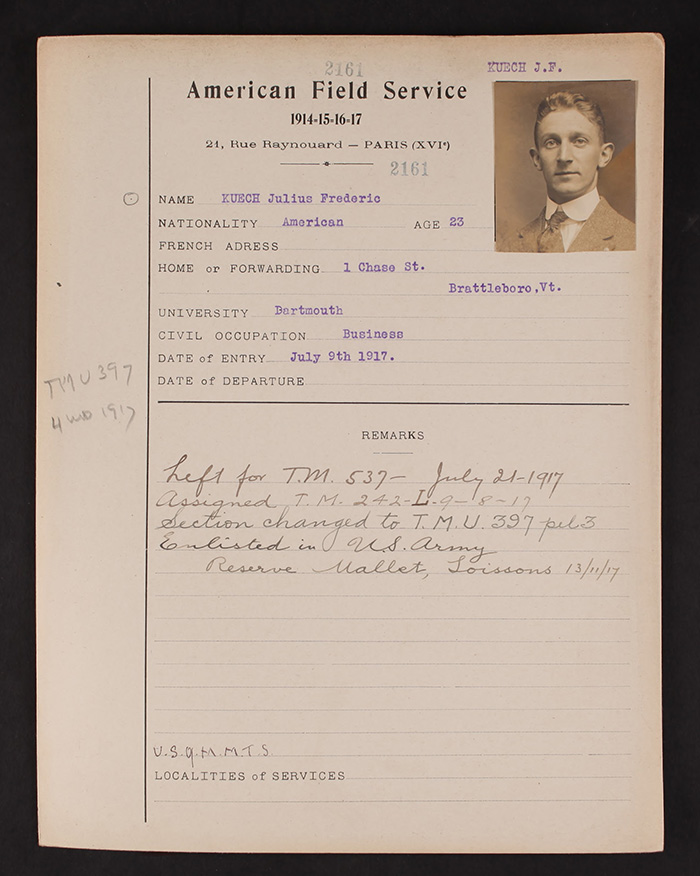 2161
KUECH J.F.
American Field Service
1914-15-16-17
21, Rue Raynouard — PARIS (XVIe)
2161
NAME KUECH Julius Frederic
NATIONALITY American AGE 23
FRENCH ADRESS
HOME or FORWARDING 1 Chase St.
Brattleboro,Vt.
UNIVERSITY Dartmouth
CIVIL OCCUPATION Business
DATE of ENTRY July 9th 1917.
DATE of DEPARTURE
TMU 397
4 mo 1917
REMARKS
Left for T.M. 537— July 21-1917
Assigned T.M. 242-L-9-8-17
Section changed to T.M.U. 397 pel3
Enlisted in U.S. Army
Reserve Mallet, Soissons 13/11/17
U.S.Q.M.M.T.S.
LOCALITIES of SERVICES